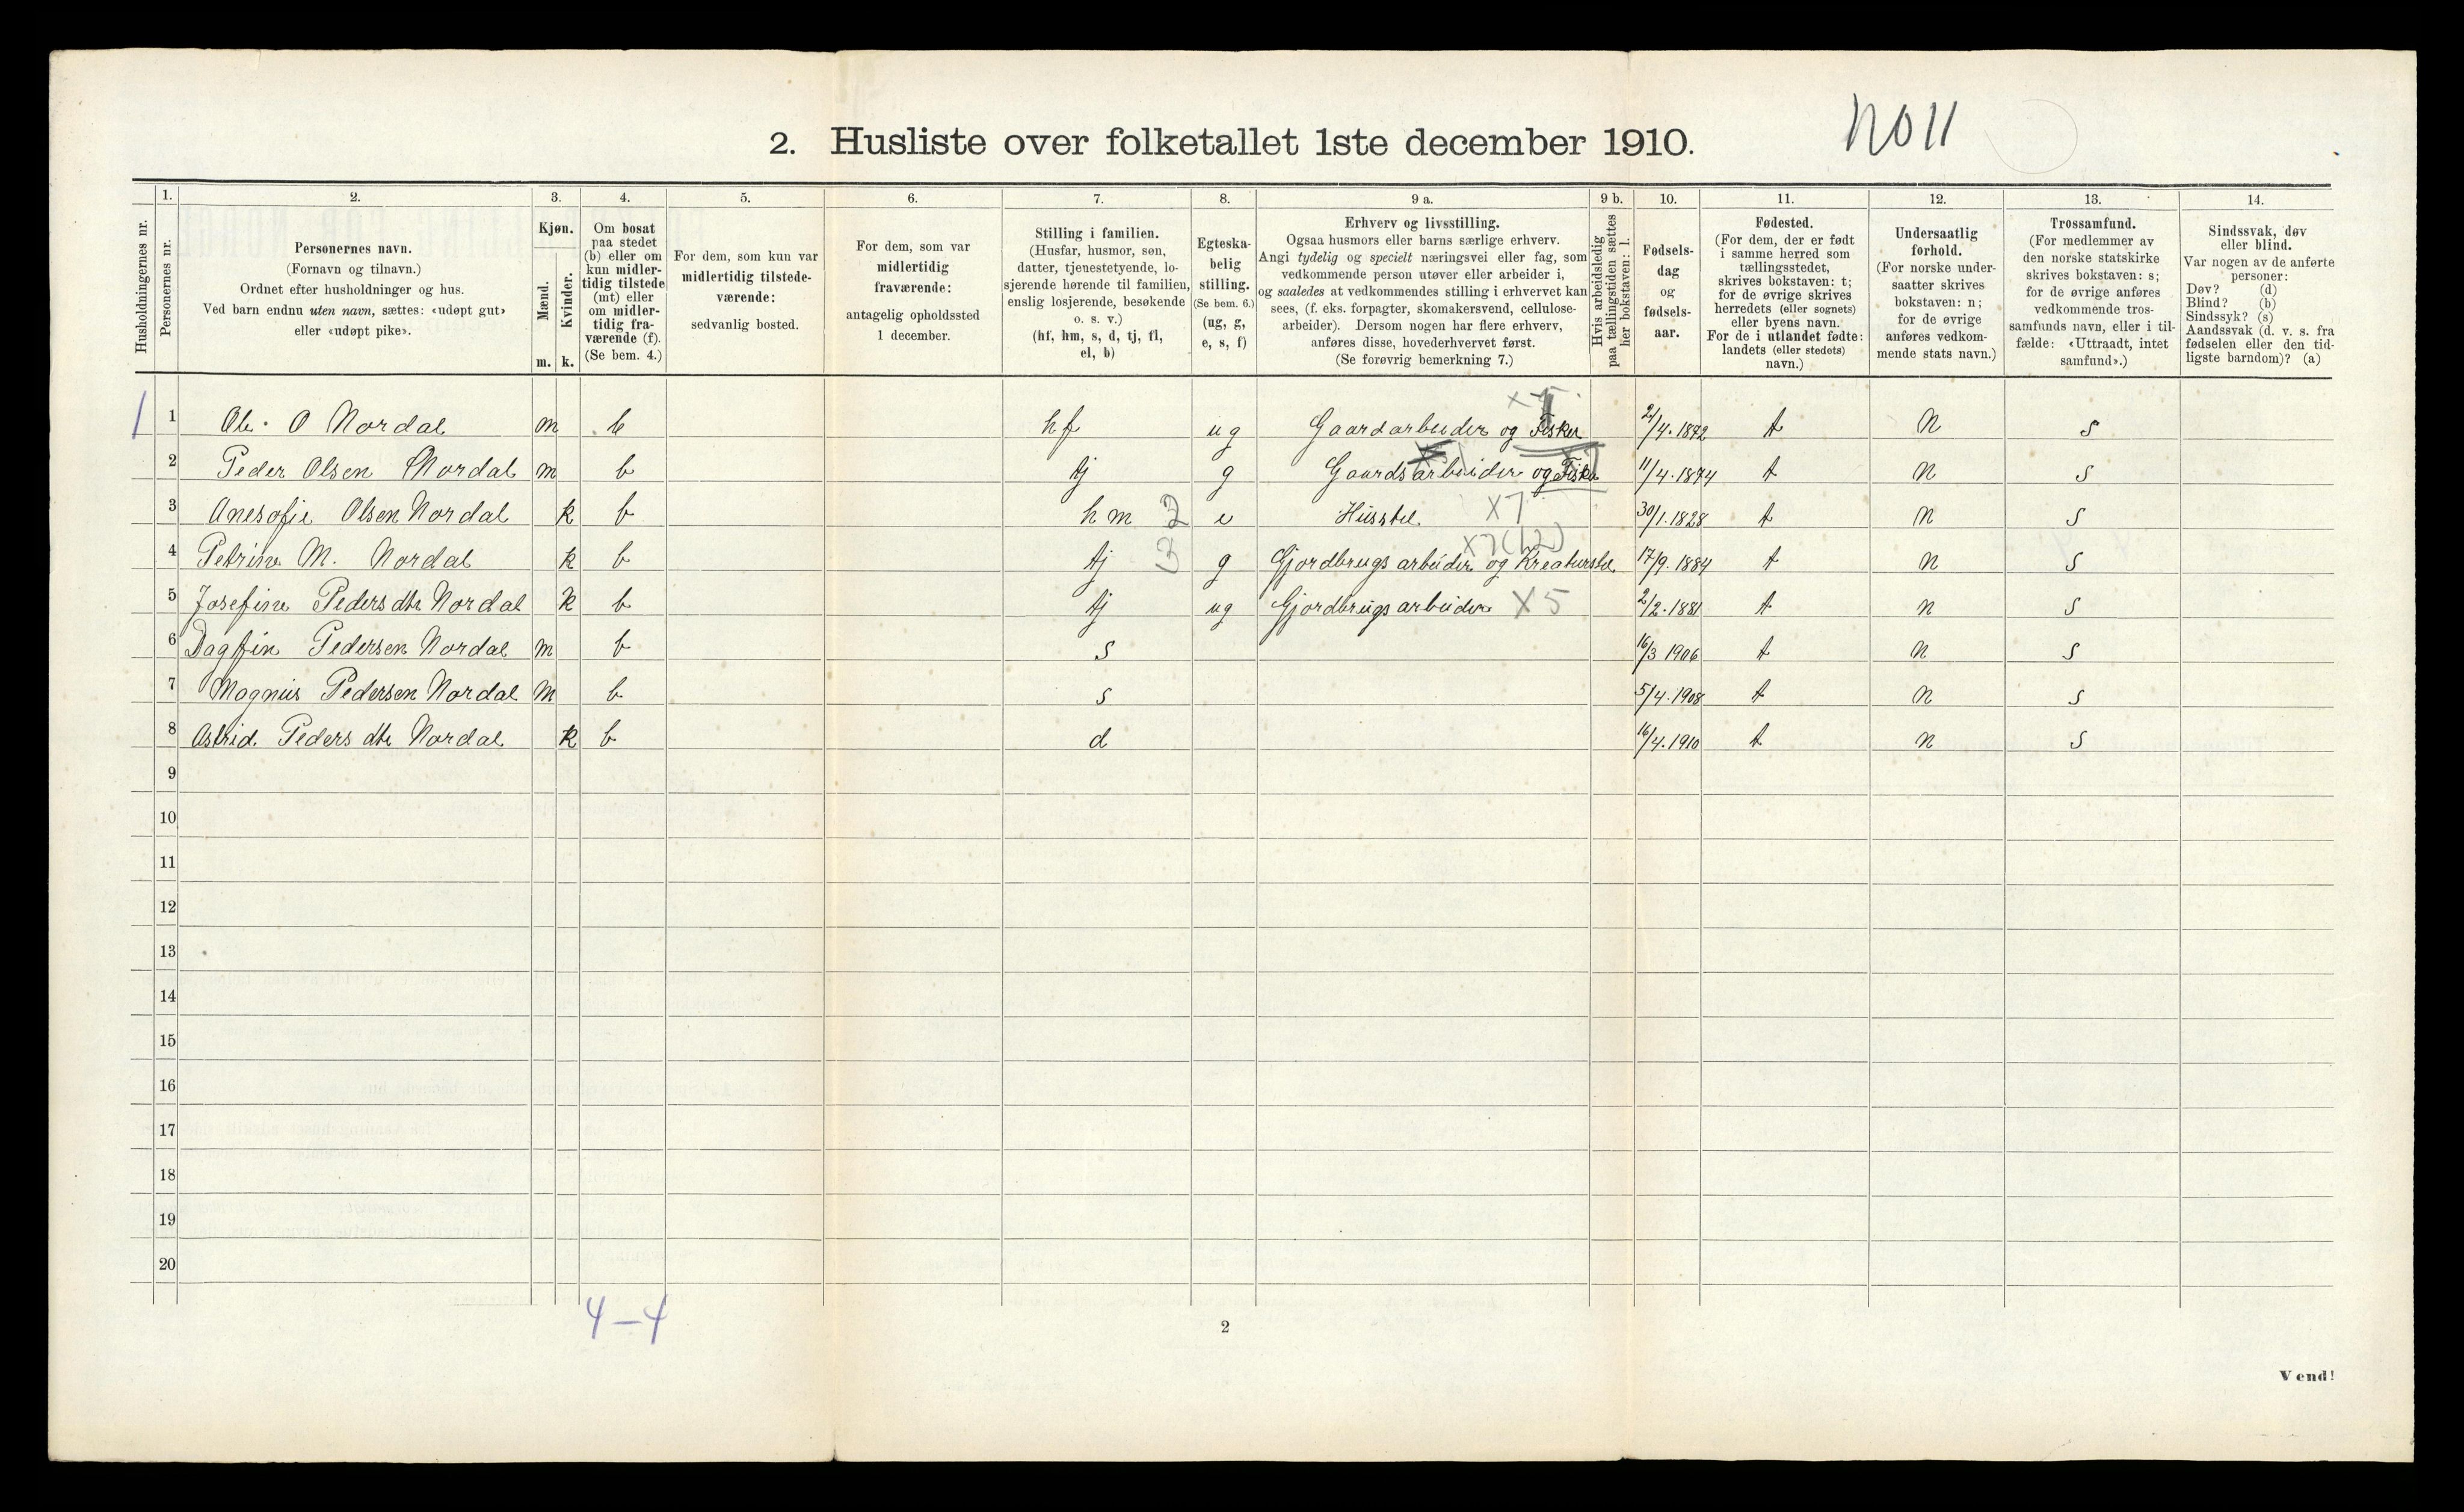 2. Husliste over folketallet 1ste december 1910.
No 11
1. 2. 3. 4. 5. 6. 7. 8. 9 a. 9 b. 10. 11. 12. 13. 14.
Husholdningernes nr.
Personernes nr.
Personernes navn.
(Fornavn og tilnavn.)
Ordnet efter husholdninger og hus.
Ved barn endnu uten navn, sættes: «udøpt gut»
eller «udøpt pike».
Kjøn.
Mænd.
Kvinder.
m. k.
Om bosat
paa stedet
(b) eller om
kun midler-
tidig tilstede
(mt) eller
om midler-
tidig fra-
værende (f).
(Se bem. 4.)
For dem, som kun var
midlertidig tilstede-
værende:
sedvanlig bosted.
For dem, som var
midlertidig
fraværende:
antagelig opholdssted
1 december.
Stilling i familien.
(Husfar, husmor, søn,
datter, tjenestetyende, lo-
sjerende hørende til familien,
enslig losjerende, besøkende
o. s. v.)
(hf, hm, s, d, tj, fl,
el, b)
Egteska-
belig
stilling.
(Se bem. 6.)
(ug, g,
e, s, f)
Erhverv og livsstilling.
Ogsaa husmors eller barns særlige erhverv.
Angi tydelig og specielt næringsvei eller fag, som
vedkommende person utøver eller arbeider i,
og saaledes at vedkommendes stilling i erhvervet kan
sees, (f. eks. forpagter, skomakersvend, cellulose-
arbeider). Dersom nogen har flere erhverv,
anføres disse, hovederhvervet først.
(Se forøvrig bemerkning 7.)
Hvis arbeidsledig
paa tællingstiden sættes
her bokstaven: l.
Fødsels-
dag
og
fødsels-
aar.
Fødested.
(For dem, der er født
i samme herred som
tællingsstedet,
skrives bokstaven: t;
for de øvrige skrives
herredets (eller sognets)
eller byens navn.
For de i utlandet fødte:
landets (eller stedets)
navn.)
Undersaatlig
forhold.
(For norske under-
saatter skrives
bokstaven: n;
for de øvrige
anføres vedkom-
mende stats navn.)
Trossamfund.
(For medlemmer av
den norske statskirke
skrives bokstaven: s;
for de øvrige anføres
vedkommende tros-
samfunds navn, eller i til-
fælde: «Uttraadt, intet
samfund».)
Sindssvak, døv
eller blind.
Var nogen av de anførte
personer:
Døv? (d)
Blind? (b)
Sindssyk? (s)
Aandssvak (d. v. s. fra
fødselen eller den tid-
ligste barndom)? (a)
1 1 Ole O Nordal m b hf ug Gaardarbeider og Fisker 2/4.1872 t n s
2 Peder Olsen Nordal m b tj g Gaardsarbeider og Fisker 11/4.1874 t n s
3 Anesofie Olsen Nordal k b hm 2 e Husstel X7 30/1.1828 t n s
X7 (12)
4 Petrine M. Nordal k b tj g Gjordbrugs arbeider og Kreaturstel 17/9.1884 t n s
5 Josefine Pedersdtr Nordal k b tj ug Gjordbrugs arbeider X5 2/2.1881 t n s
6 Dagfin Pedersen Nordal m b s 16/3 1906 t n s
7 Magnus Pedersen Nordal m b s 5/4.1908 t n s
8 Astrid Pedersdtr Nordal k b d 16/4.1910 t n s
9
10
11
12
13
14
15
16
17
18
19
20
4-4
2
Vend!